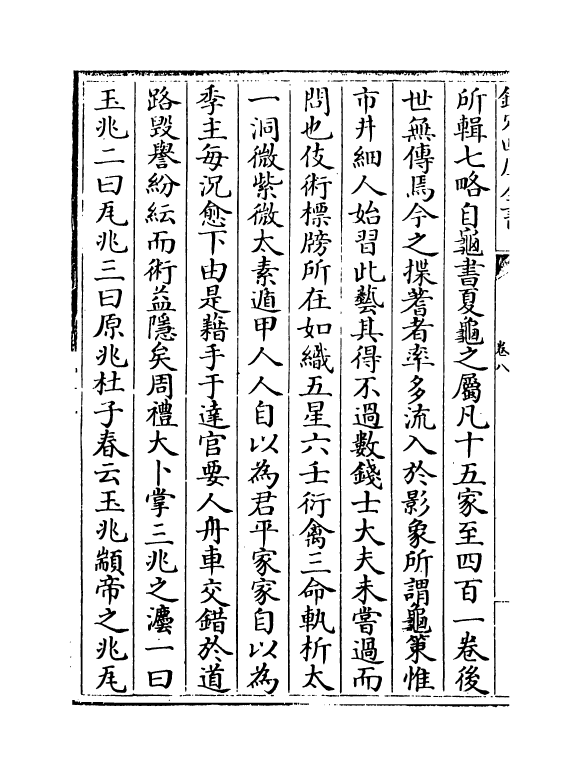 欽定四庫全書
卷八
所輯七略自龜書夏龜之屬凡十五家至四百一卷後
世無傳焉今之揲蓍者率多流入於影象所謂龜策惟
市井細人始習此藝其得不過數錢士大夫未嘗過而
問也伎術標牓所在如織五星六壬衍禽三命軌析太
一洞微紫微太素遁甲人人自以為君平家家自以為
季主每況愈下由是藉手于達官要人舟車交錯於道
路毀譽紛紜而術益隱矣周禮大卜掌三兆之灋一曰
玉兆二曰瓦兆三曰原兆杜子春云玉兆顓帝之兆瓦